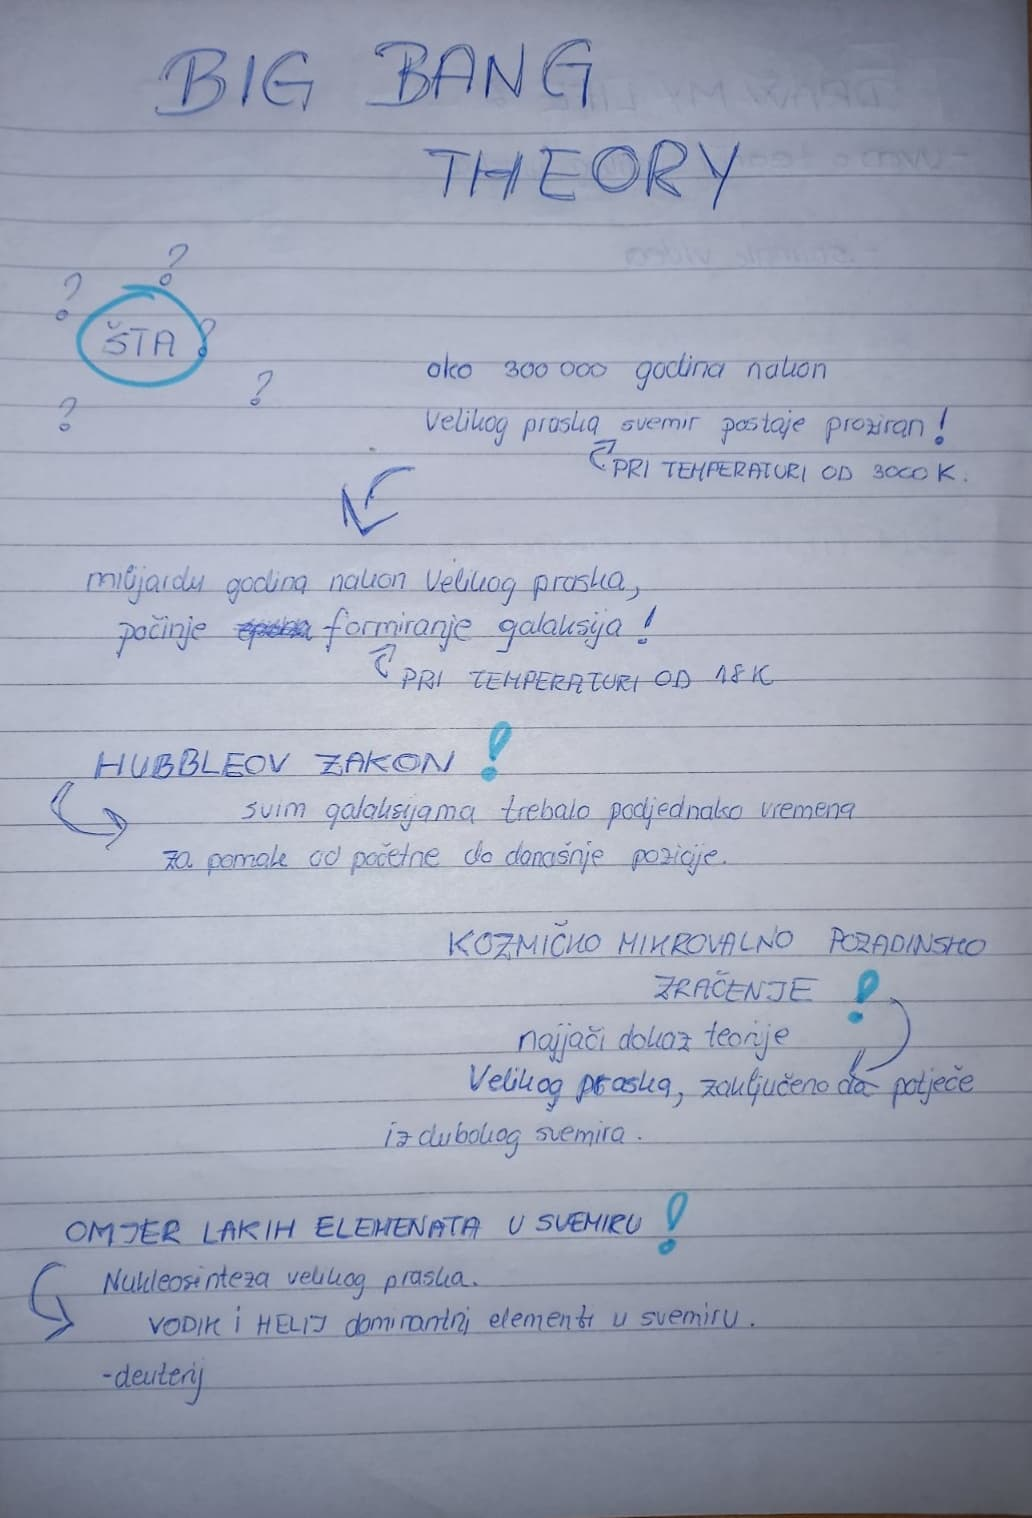 BIG BANG
THEORY
?
?
ŠTA?
?
?
oko 300 000 godina nakon
Velikog praska svemir postaje proziran!
PRI TEMPERATURI OD 3000 K.
milijardu godina nakon Velikog praska,
počinje formiranje galaksija!
PRI TEMPERATURI OD 18 K
HUBBLEOV ZAKON!
svim galaksijama trebalo podjednako vremena
za pomak od početne do današnje pozicije.
KOZMIČKO MIKROVALNO POZADINSKO
ZRAČENJE!
najjači dokaz teorije
Velikog praska, zaključeno da potječe
iz dubokog svemira.
OMJER LAKIH ELEMENATA U SVEMIRU!
Nukleosinteza velikog praska.
VODIK i HELIJ dominantni elementi u svemiru.
-deuterij